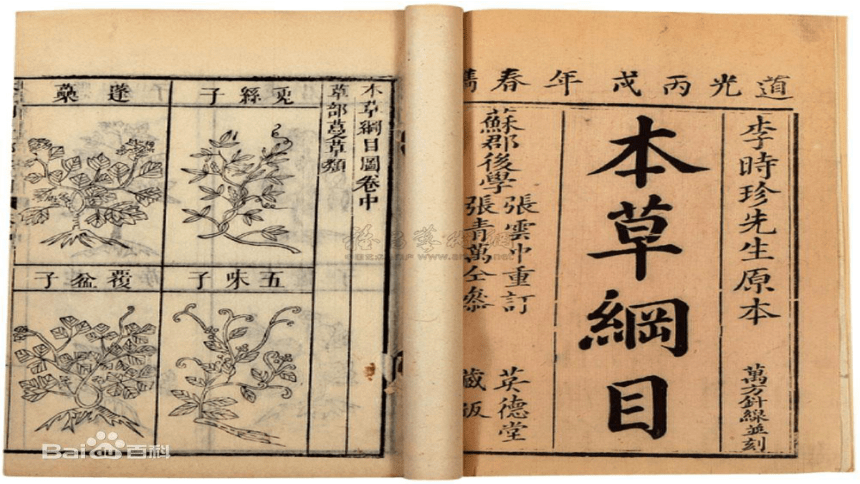 道光丙戌年春鐫
李時珍先生原本
萬方針線並刻
本草綱目
蘇郡後學
張雲中重訂
張青萬仝叅
英德堂
藏版
本草綱目圖卷中
草部蔓草類
兎絲子
蓬蘽
五味子
覆盆子
Bai du 百科